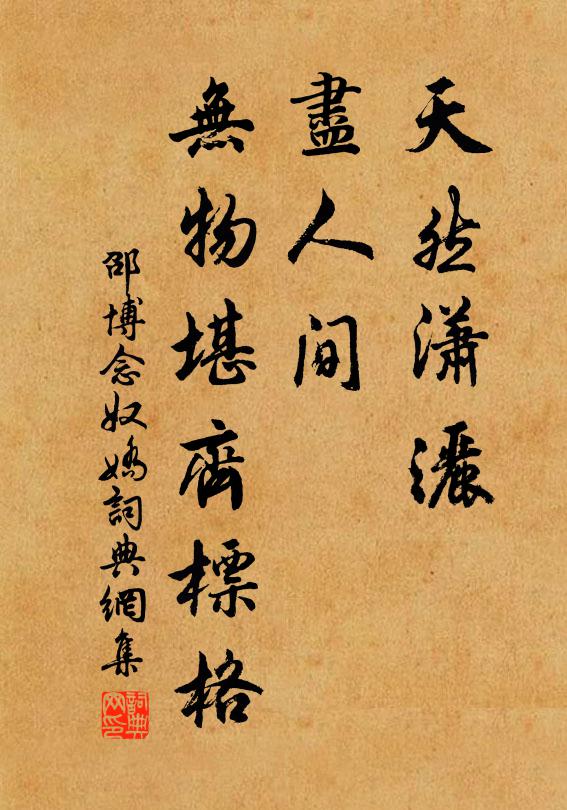 天然瀟灑
盡人間
無物堪齊標格
邵博念奴嬌詞典網集
詞典网印